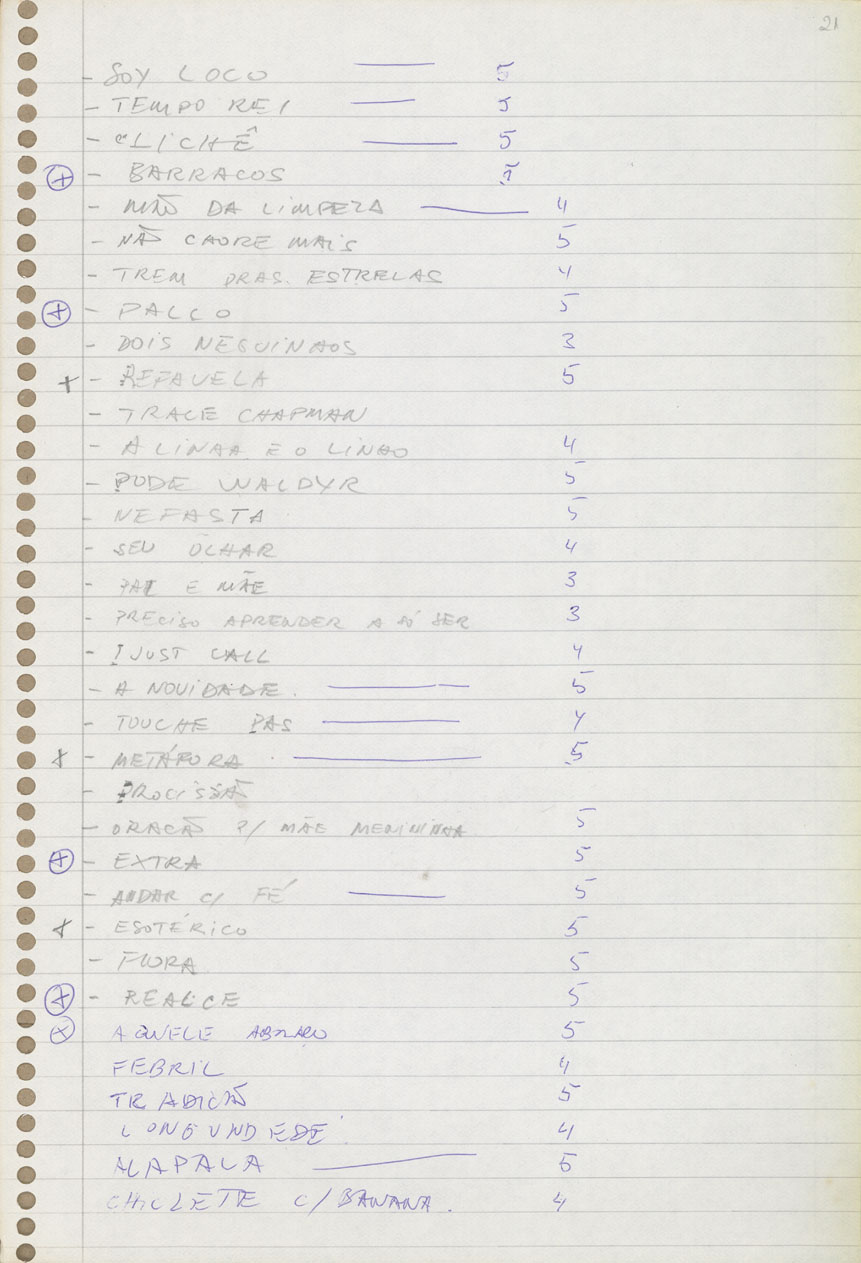 21
- SOY LOCO —— 5
- TEMPO REI —— 5
- CLICHÊ —— 5
⊕ - BARRACOS 5
- MÃO DA LIMPEZA —— 4
- NÃO CHORE MAIS 5
- TREM PRAS ESTRELAS 4
⊕ - PALCO 5
- DOIS NEGUINHOS 3
+ - REFAVELA 5
- TRACE CHAPMAN
- A LINHA E O LINHO 4
- PODE WALDYR 5
- NEFASTA 5
- SEU OLHAR 4
- PAI E MÃE 3
- PRECISO APRENDER A SÓ SER 3
- I JUST CALL 4
- A NOVIDADE. —— 5
- TOUCHE PAS —— 4
+ - METÁFORA —— 5
- PROCISSÃO
- ORAÇÃO P/ MÃE MENININHA 5
⊕ - EXTRA 5
- ANDAR C/ FÉ —— 5
+ - ESOTÉRICO 5
- FLORA 5
⊕ - REALCE 5
⊗ AQUELE ABRAÇO 5
FEBRIL 4
TRADIÇÃO 5
LONGUNDEDÉ 4
ALAPALA —— 5
CHICLETE C/ BANANA. 4